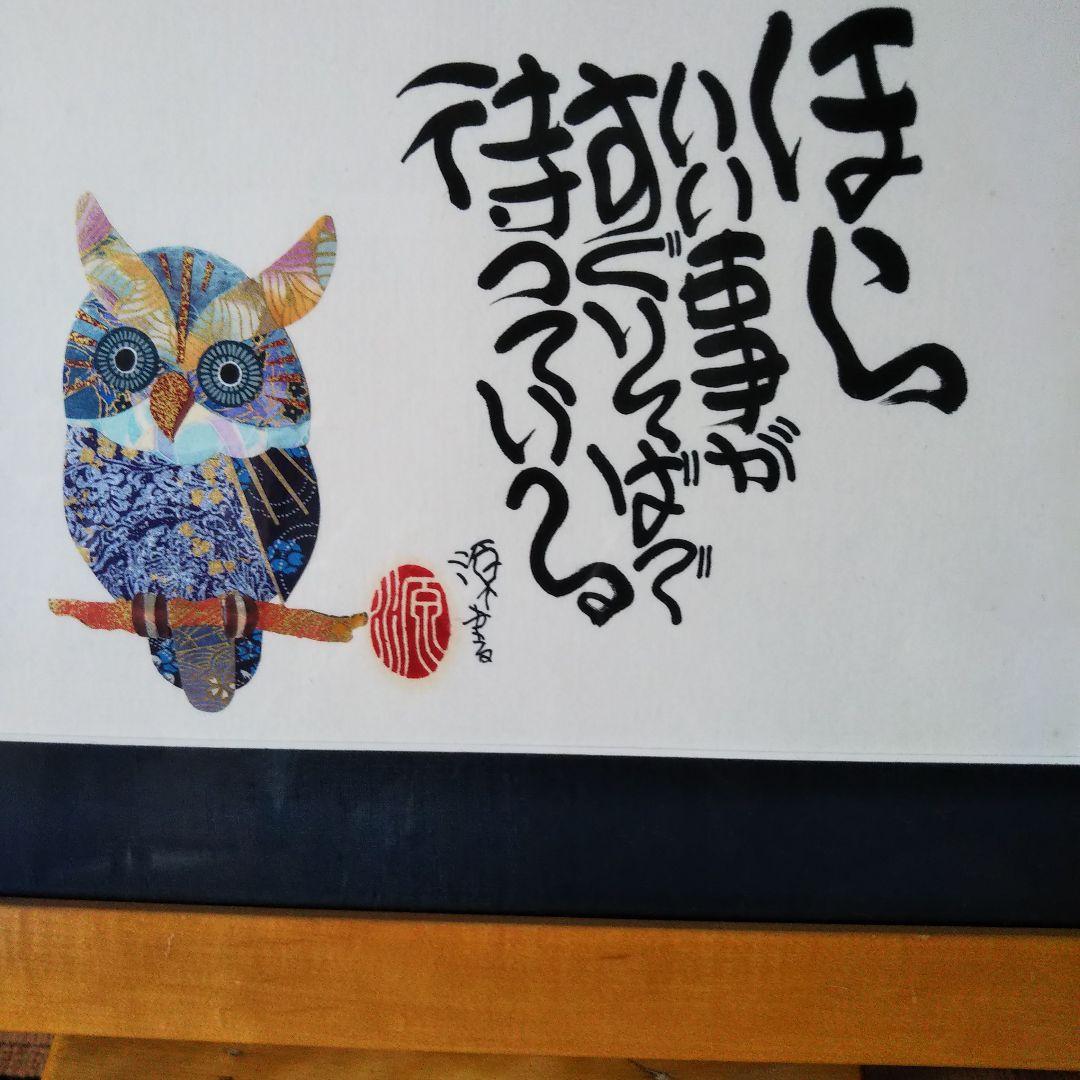 ほら
いい事が
すぐそばで
待っている
源